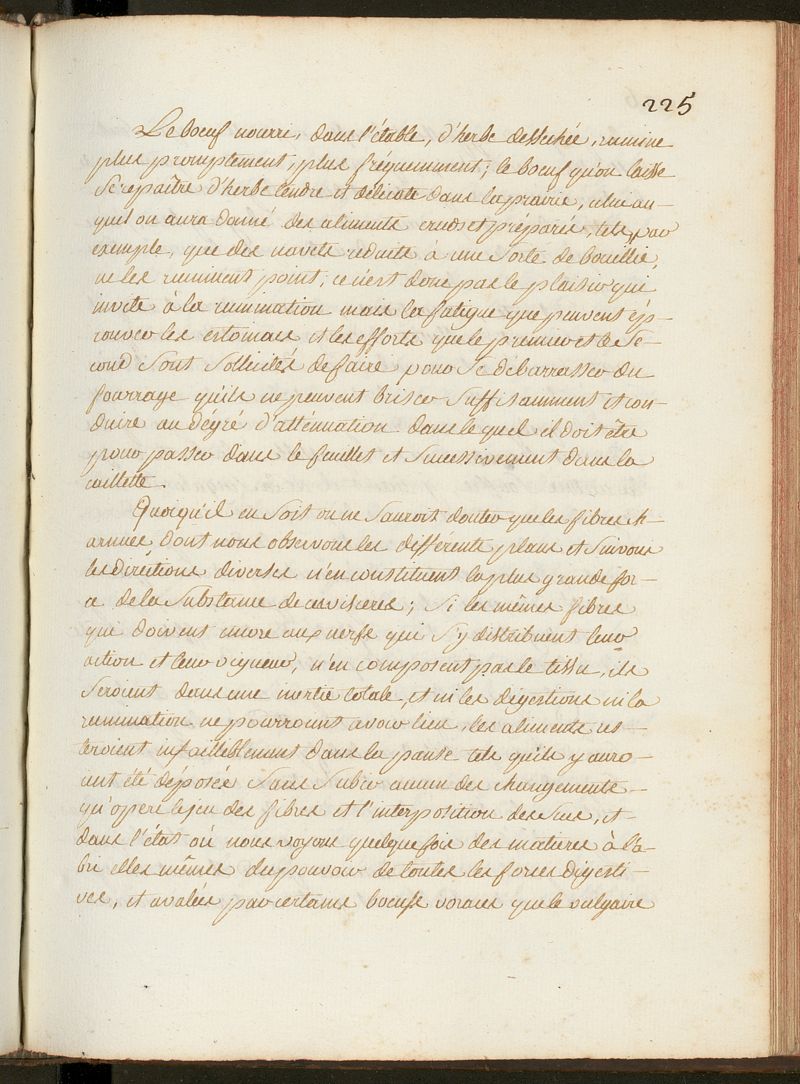 225
Le boeuf nourri, dans l'étable, d'herbe dessechée, rumine
plus promptement, plus frequemment; le boeuf qu'on laisse
se repaître d'herbe tendre et délicate dans la prairie, celui au-
quel on aura donné des aliments cruds et préparés, tels par
exemple, que des navets reduits à une sorte de bouillie,
ne les ruminent point, ce n'est donc pas le plaisir qui
invite à la rumination mais la fatigue que peuvent ép-
rouver les estomacs et les efforts que le premier et le se-
cond sont sollicités de faire pour se débarrasser du
fourrage qu'ils ne peuvent briser suffisamment et con-
duire au dégré d'atténuation dans lequel il doit être
pour passer dans le feuillet et successivement dans la
caillette.
Quoiqu'il en soit on ne sauroit douter que les fibres ch-
arnues, dont nous observons les différents plans et suivons
les diréctions diverses n'en constituent la plus grande for-
ce de la substance de ces visceres; si les mêmes fibres
qui doivent encore aux nerfs qui s'y distribuent leur
action et leur vigueur, n'en composent pas le tissu, ils
seroient dans une inertie totale, et ni les digestions ni la
rumination ne pourroient avoir lieu, les aliments res-
teroient infailliblement dans la panse tels qu'ils y auro-
ient été déposés sans subir aucun des changements
qu'opere le jeu des fibres et l'interposition des sucs, et
dans l'état où nous voyons quelquefois des matieres à l'a-
bri elles mêmes du pouvoir de toutes les forces digesti-
ves, et avalées par certains boeufs voraces que le vulgaire